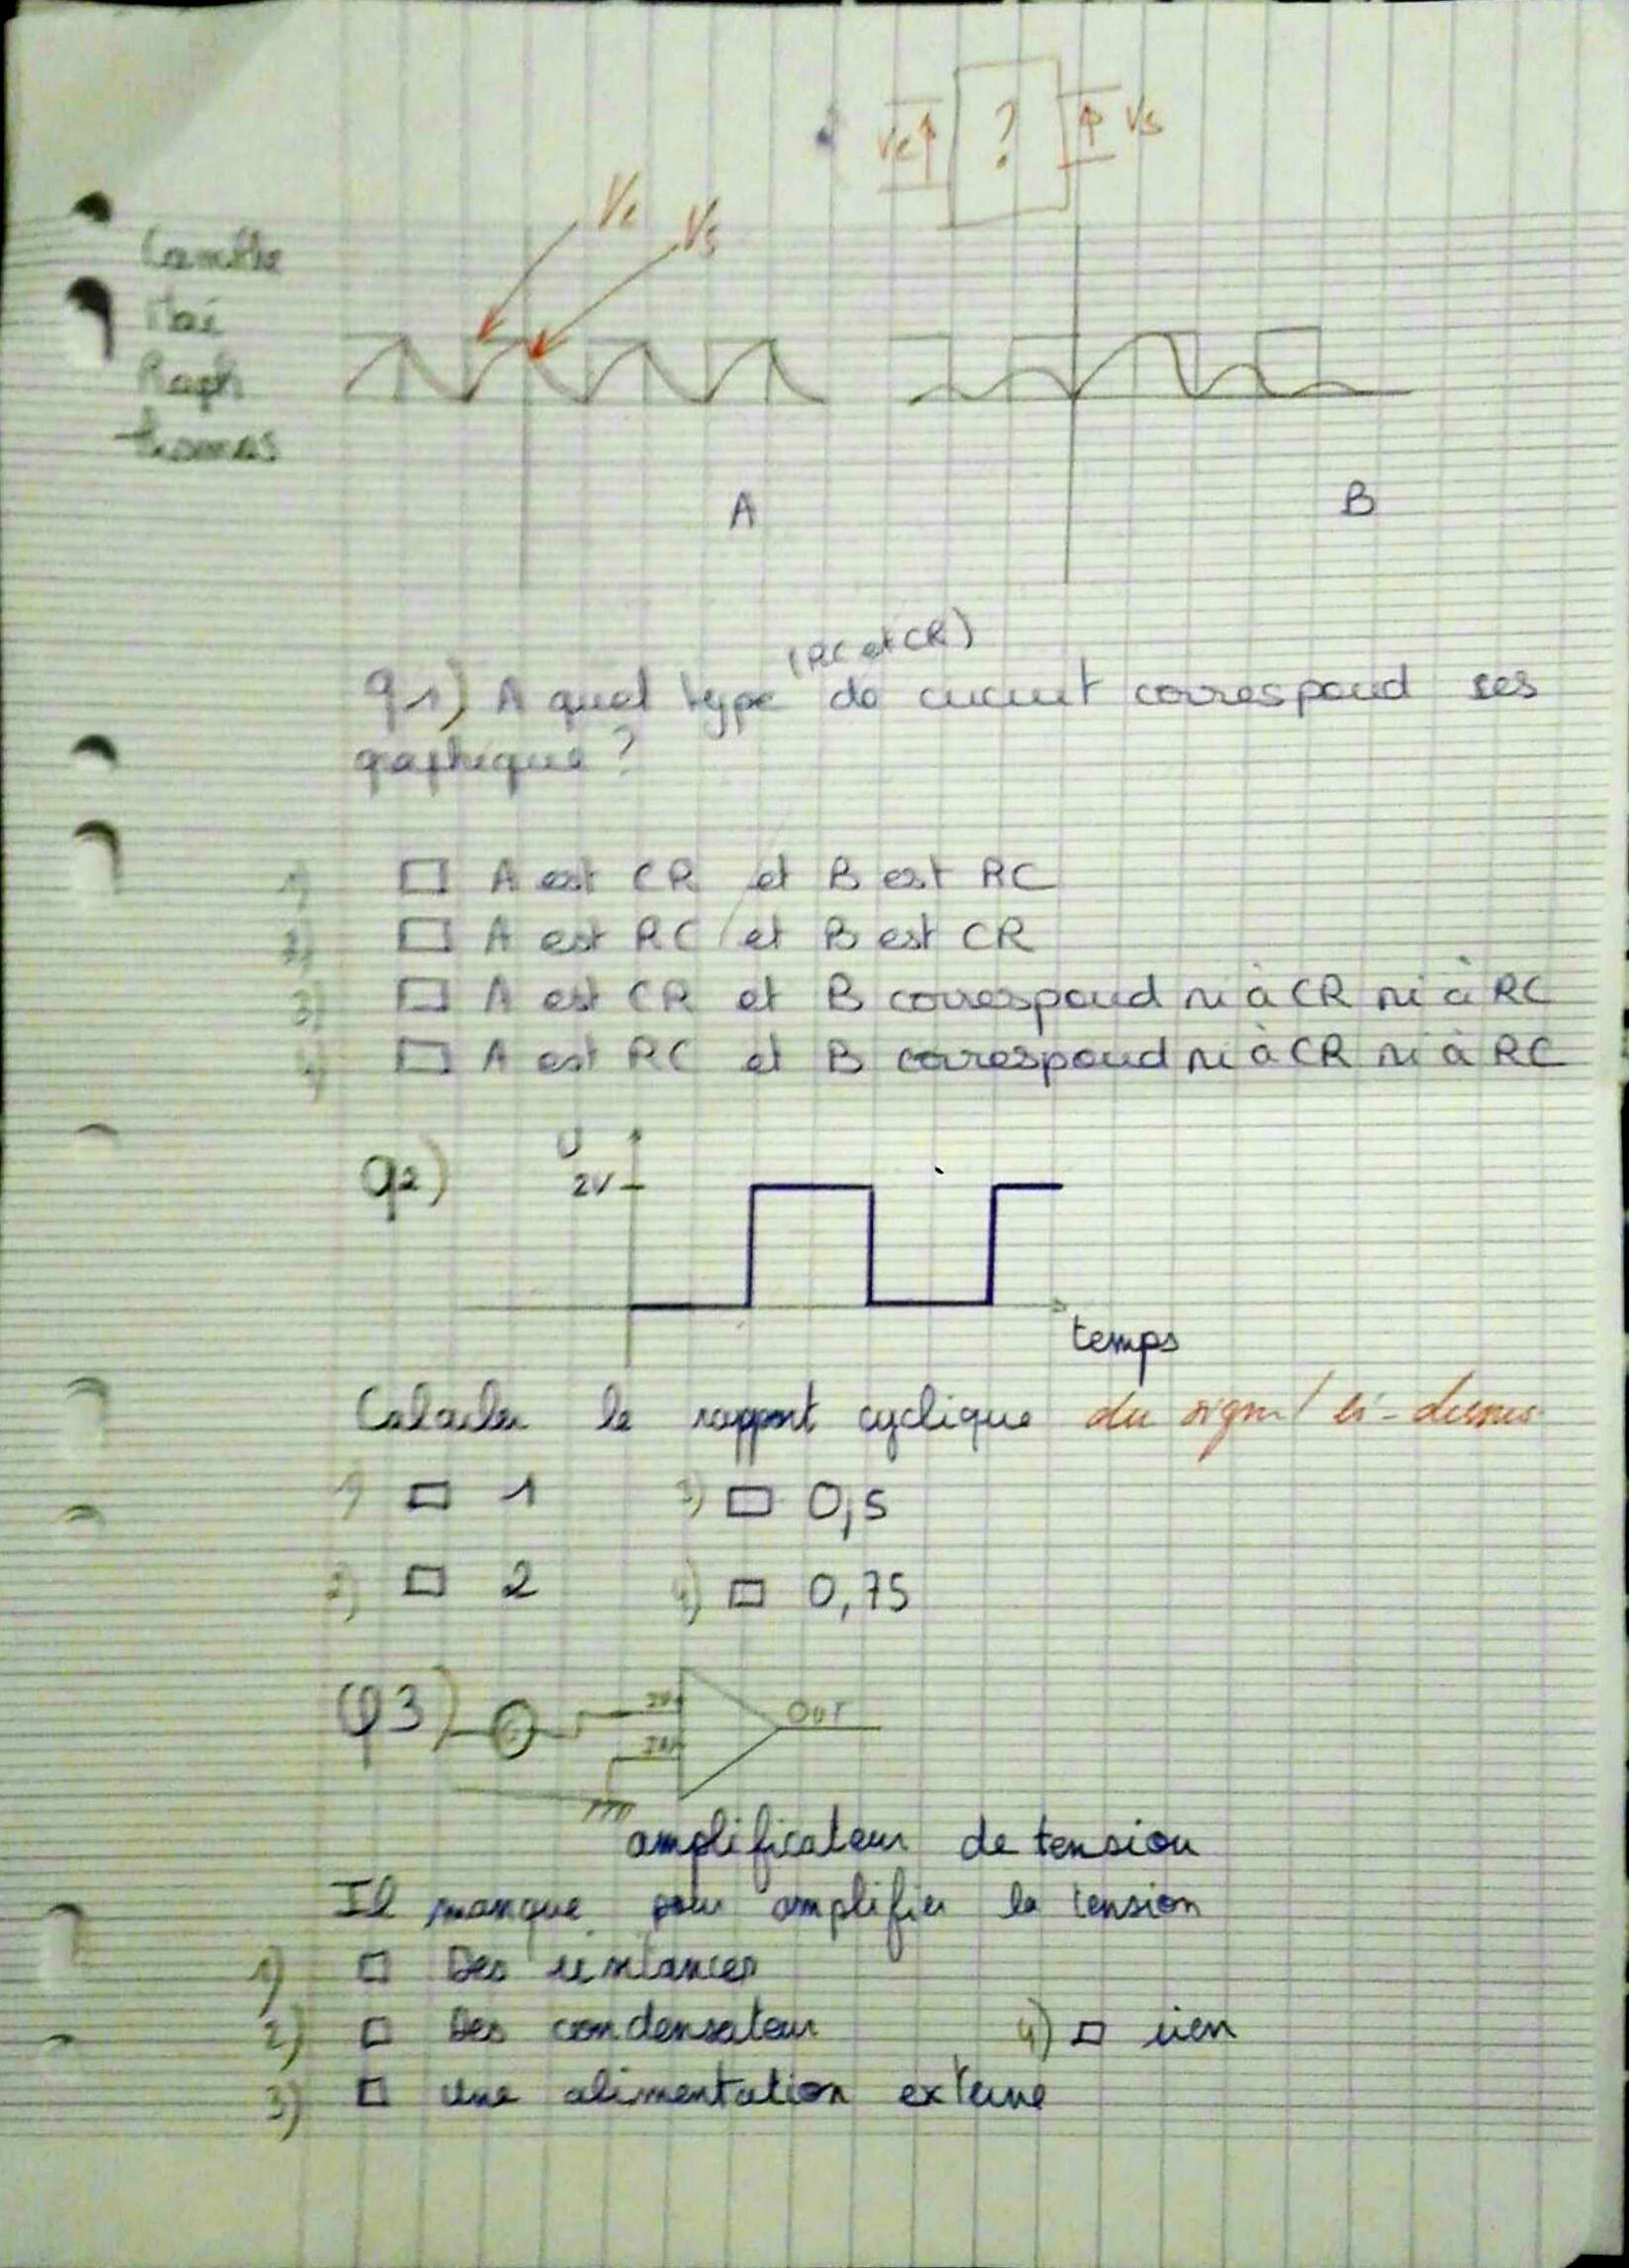 Ve ? Vs
Ve Vs
Camille
Maï
Raph
thomas
A B
(RC et CR)
q1) A quel type de circuit correspond ses
graphique ?
1) A est CR et B est RC
2) A est RC et B est CR
3) A est CR et B correspond ni à CR ni à RC
4) A est RC et B correspond ni à CR ni à RC
q2) U
2V
temps
Calculer le rapport cyclique du signal ci-dessus
1) 1 3) 0,5
2) 2 4) 0,75
Q3) OUT
amplificateur de tension
Il manque pour amplifier la tension
1) Des résistances
2) Des condensateur 4) rien
3) Une alimentation externe